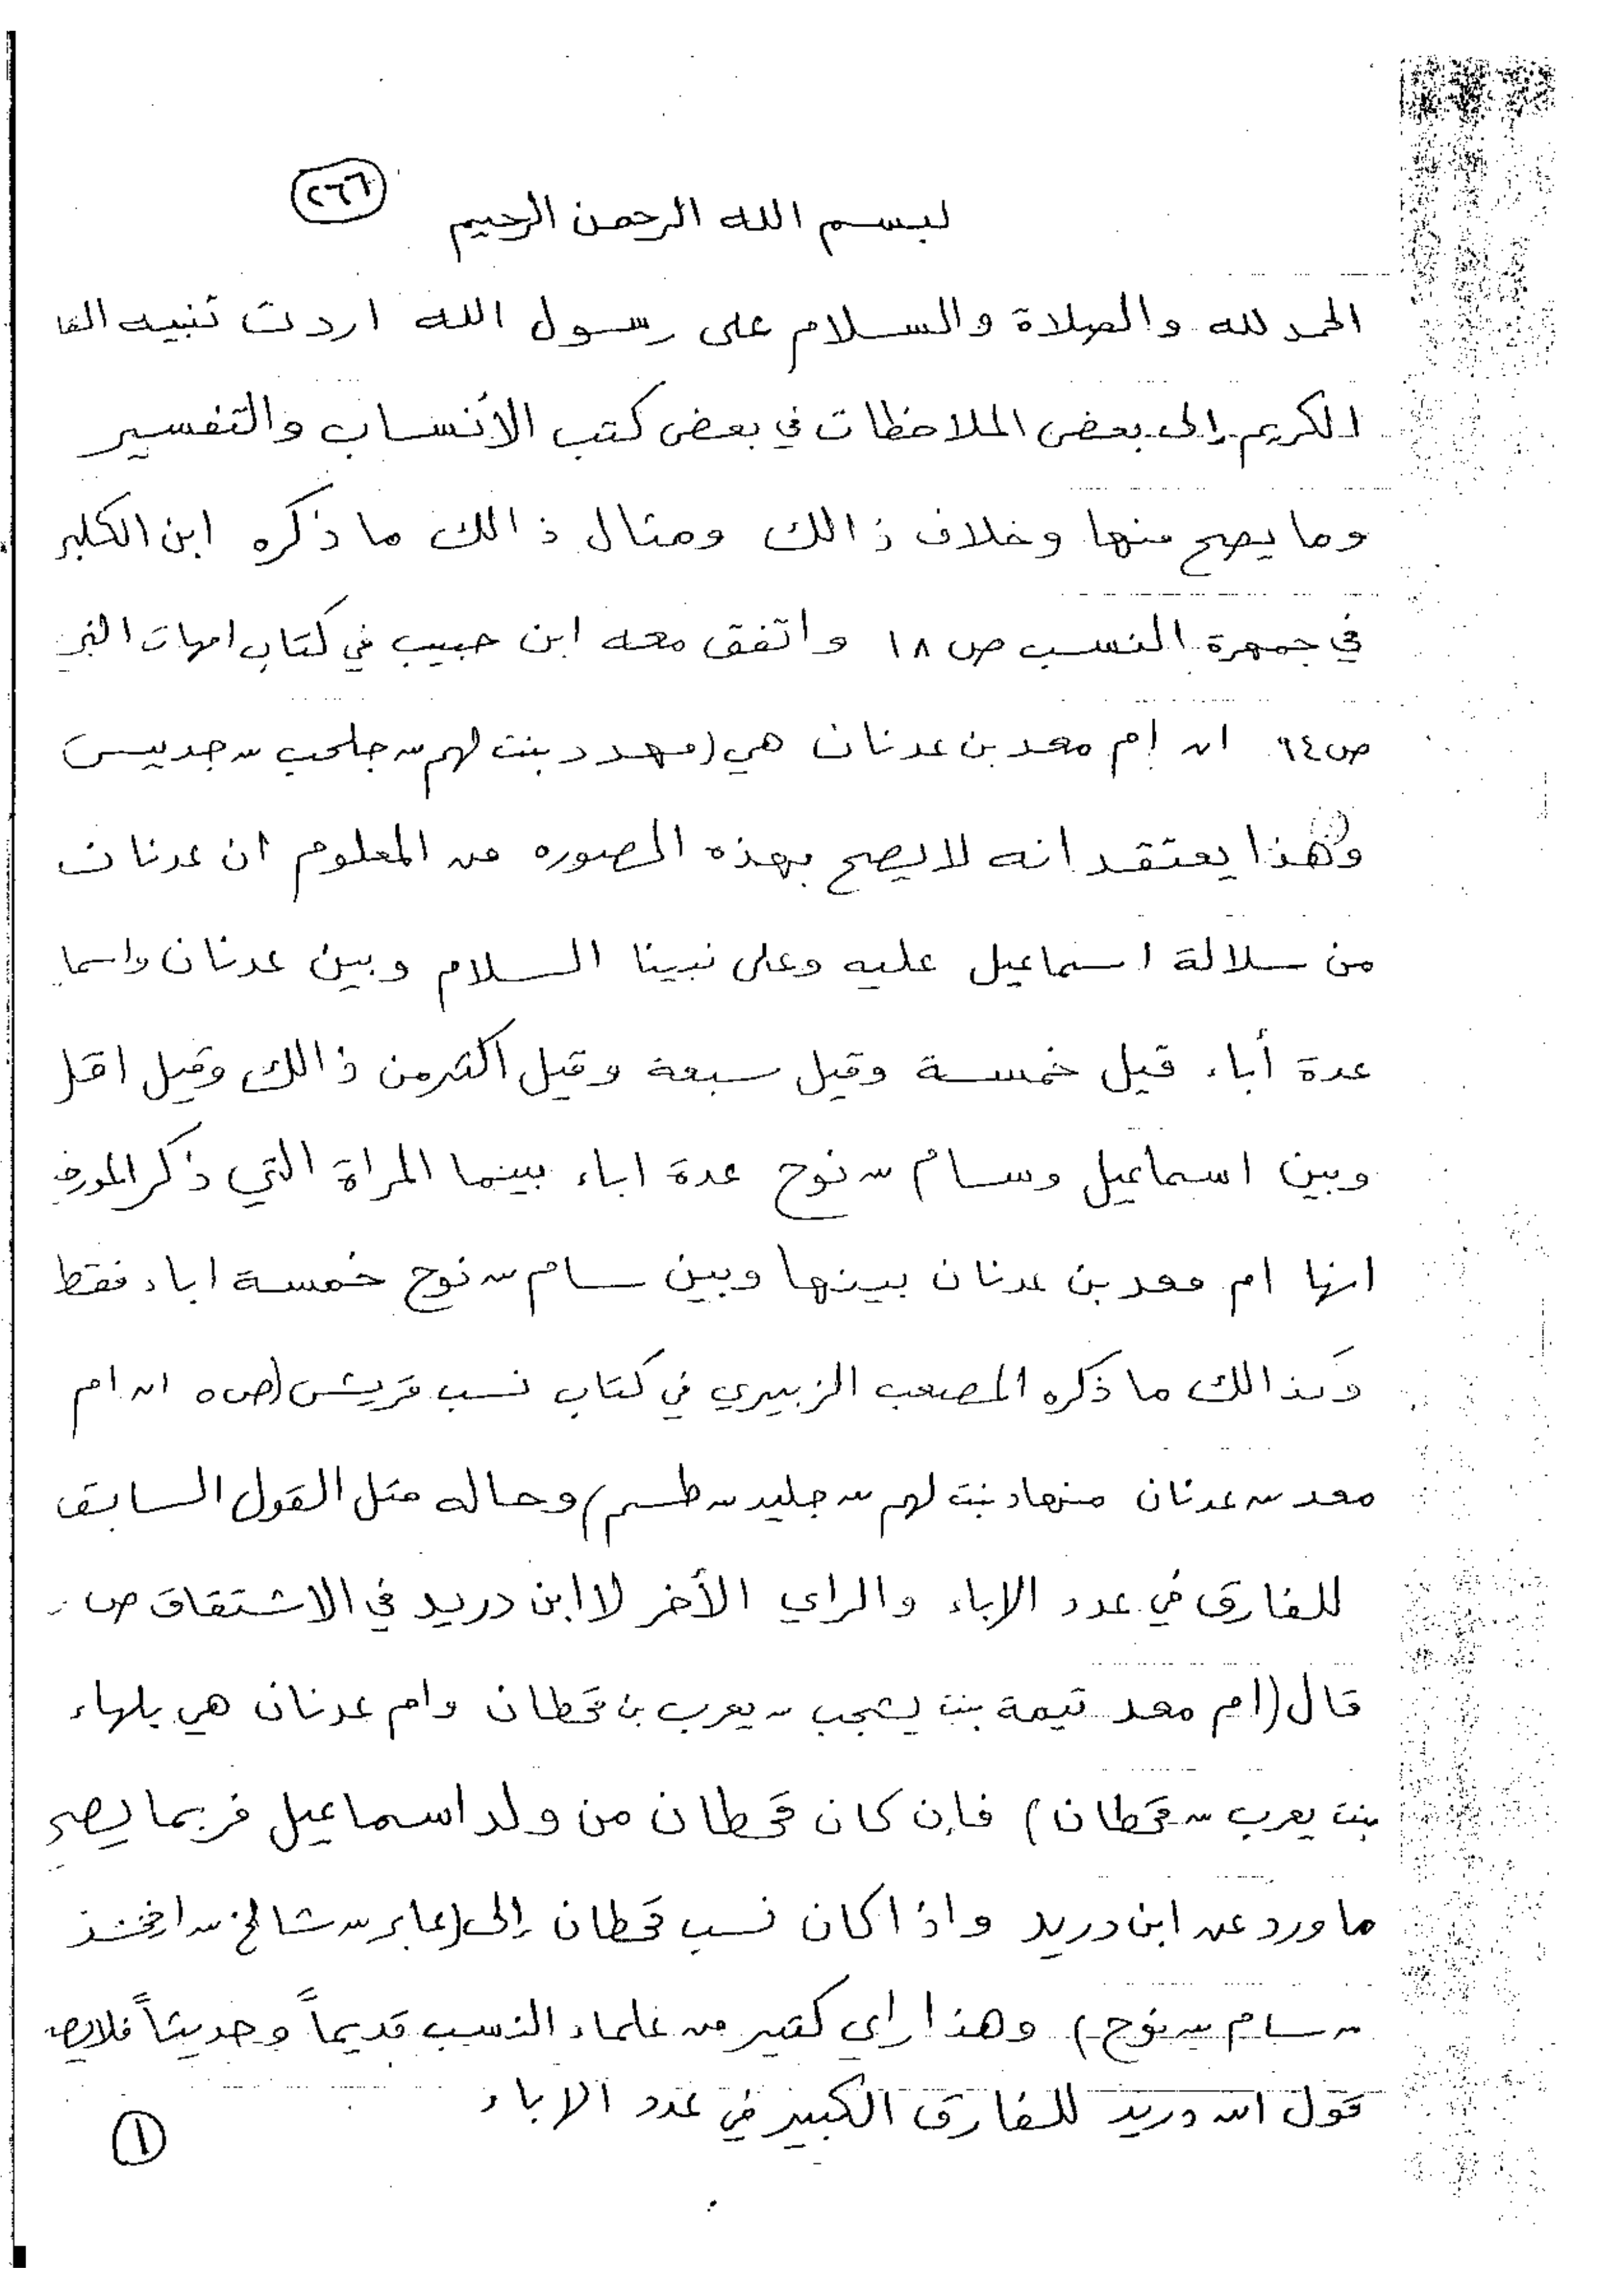 ٢٦٦
لبسم الله الرحمن الرحيم
الحمد لله والصلاة والسلام على رسول الله اردت تنبيه القا
الكريم إلى بعض الملاحظات في بعض كتب الأنساب والتفسير
وما يصح منها وخلاف ذالك ومثال ذالك ما ذكره ابن الكلبي
في جمهرة النسب ص ١٨ واتفق معه ابن حبيب في كتاب امهات النبي
ص ٩٤ ان ام معد بن عدنان هي (مهدد بنت لهم بن جلحب بن جديس)
وهذا يعتقد انه لا يصح بهذه الصوره من المعلوم ان عدنان
من سلالة اسماعيل عليه وعلى نبينا السلام وبين عدنان واسما
عدة أباء قيل خمسة وقيل سبعة وقيل اكثر من ذالك وقيل اقل
وبين اسماعيل وسام بن نوح عدة اباء بينما المراة التي ذكر المورخ
انها ام معد بن عدنان بينها وبين سام بن نوح خمسة اباء فقط
وكذالك ما ذكره المصعب الزبيري في كتاب نسب قريش (ص ٥ ان ام
معد بن عدنان منهاد بنت لهم بن جليد بن طسم) وحاله مثل القول السابق
للفارق في عدد الاباء والراي الأخر لا ابن دريد في الاشتقاق ص
قال (ام معد تيمة بنت يشجب بن يعرب بن قحطان وام عدنان هي بلهاء
بنت يعرب بن قحطان) فإن كان قحطان من ولد اسماعيل فربما يصح
ما ورد عن ابن دريد واذا كان نسب قحطان إلى (عابر بن شالخ بن ارفخشذ
بن سام بن نوح) وهذا راي كثير من علماء النسب قديماً وحديثاً فلايصح
قول ابن دريد للفارق الكبير في عدد الاباء
١